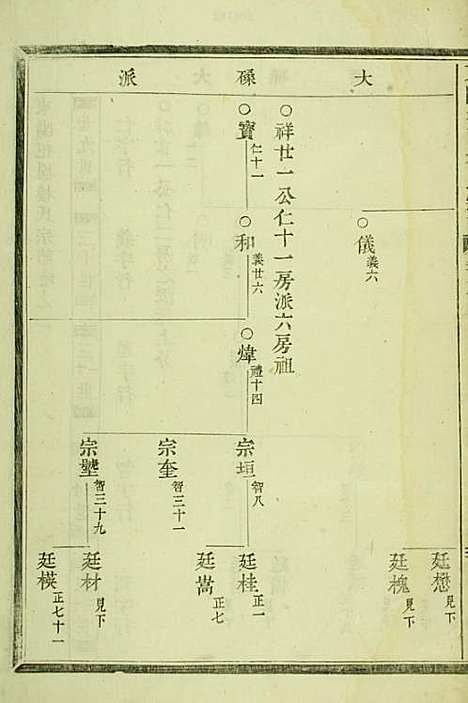 大磉派
儀 義六
廷懋 見下
廷槐 見下
○祥廿一公仁十一房派六房祖
○寶 仁十一
○和 義廿六
○煒 禮十四
宗垣 智八
廷桂 正一
廷嵩 正七
宗奎 智三十一
智三十九
廷材 見下
廷模 正七十一